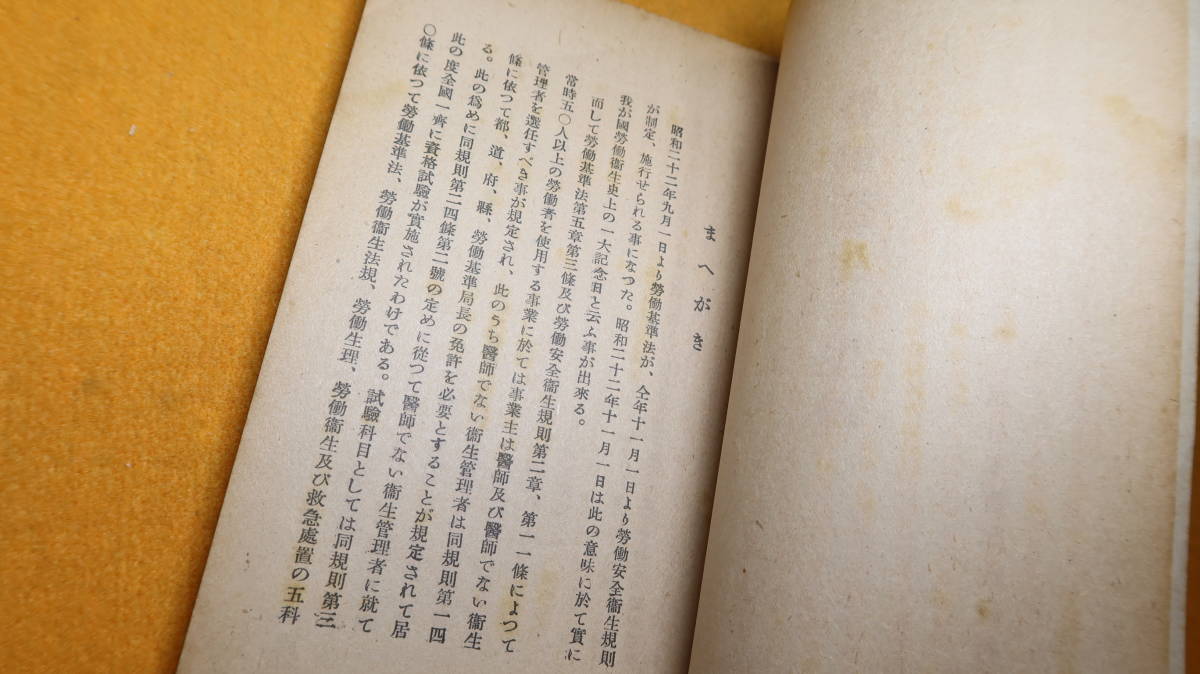 まへがき
昭和二十二年九月一日より勞働基準法が、仝年十一月一日より勞働安全衞生規則
が制定、施行せられる事になつた。昭和二十二年十一月一日は此の意味に於て實に
我が國勞働衞生史上の一大記念日と云ふ事が出來る。
而して勞働基準法第五章第三條及び勞働安全衞生規則第二章、第一一條によつて
常時五〇人以上の勞働者を使用する事業に於ては事業主は醫師及び醫師でない衞生
管理者を選任すべき事が規定され、此のうち醫師でない衞生管理者は同規則第一四
條に依つて都、道、府、縣、勞働基準局長の免許を必要とすることが規定されて居
る。此の爲めに同規則第二四條第二號の定めに從つて醫師でない衞生管理者に就て
此の度全國一齊に資格試驗が實施されたわけである。試驗科目としては同規則第三
〇條に依つて勞働基準法、勞働衞生法規、勞働生理、勞働衞生及び救急處置の五科